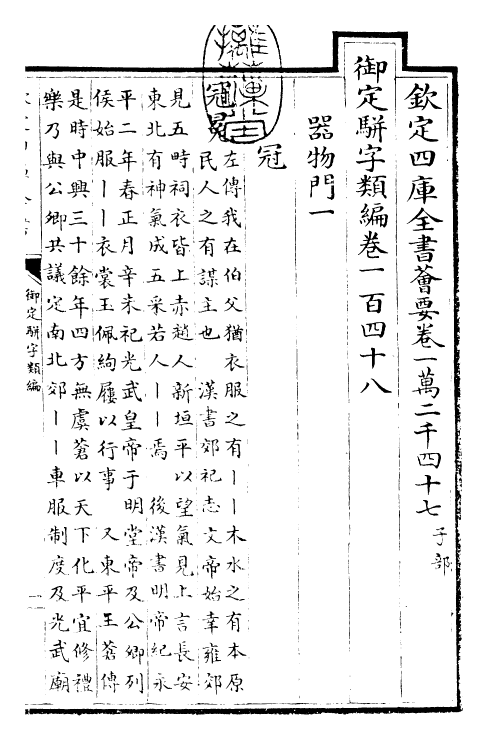 欽定四庫全書薈要卷一萬二千四十七 子部
御定駢字類編卷一百四十八
器物門一
冠
冠冕
左傳我在伯父猶衣服之有｜｜木水之有本原
民人之有謀主也　漢書郊祀志文帝始幸雍郊
見五時祠衣皆上赤趙人新垣平以望氣見上言長安
東北有神氣成五采若人｜｜焉　後漢書明帝紀永
平二年春正月辛未祀光武皇帝于明堂帝及公卿列
侯始服｜｜衣裳玉佩絇屨以行事　又東平王蒼傳
是時中興三十餘年四方無虞蒼以天下化平宜修禮
樂乃與公卿共議定南北郊｜｜車服制度及光武廟
御定駢字類編
一